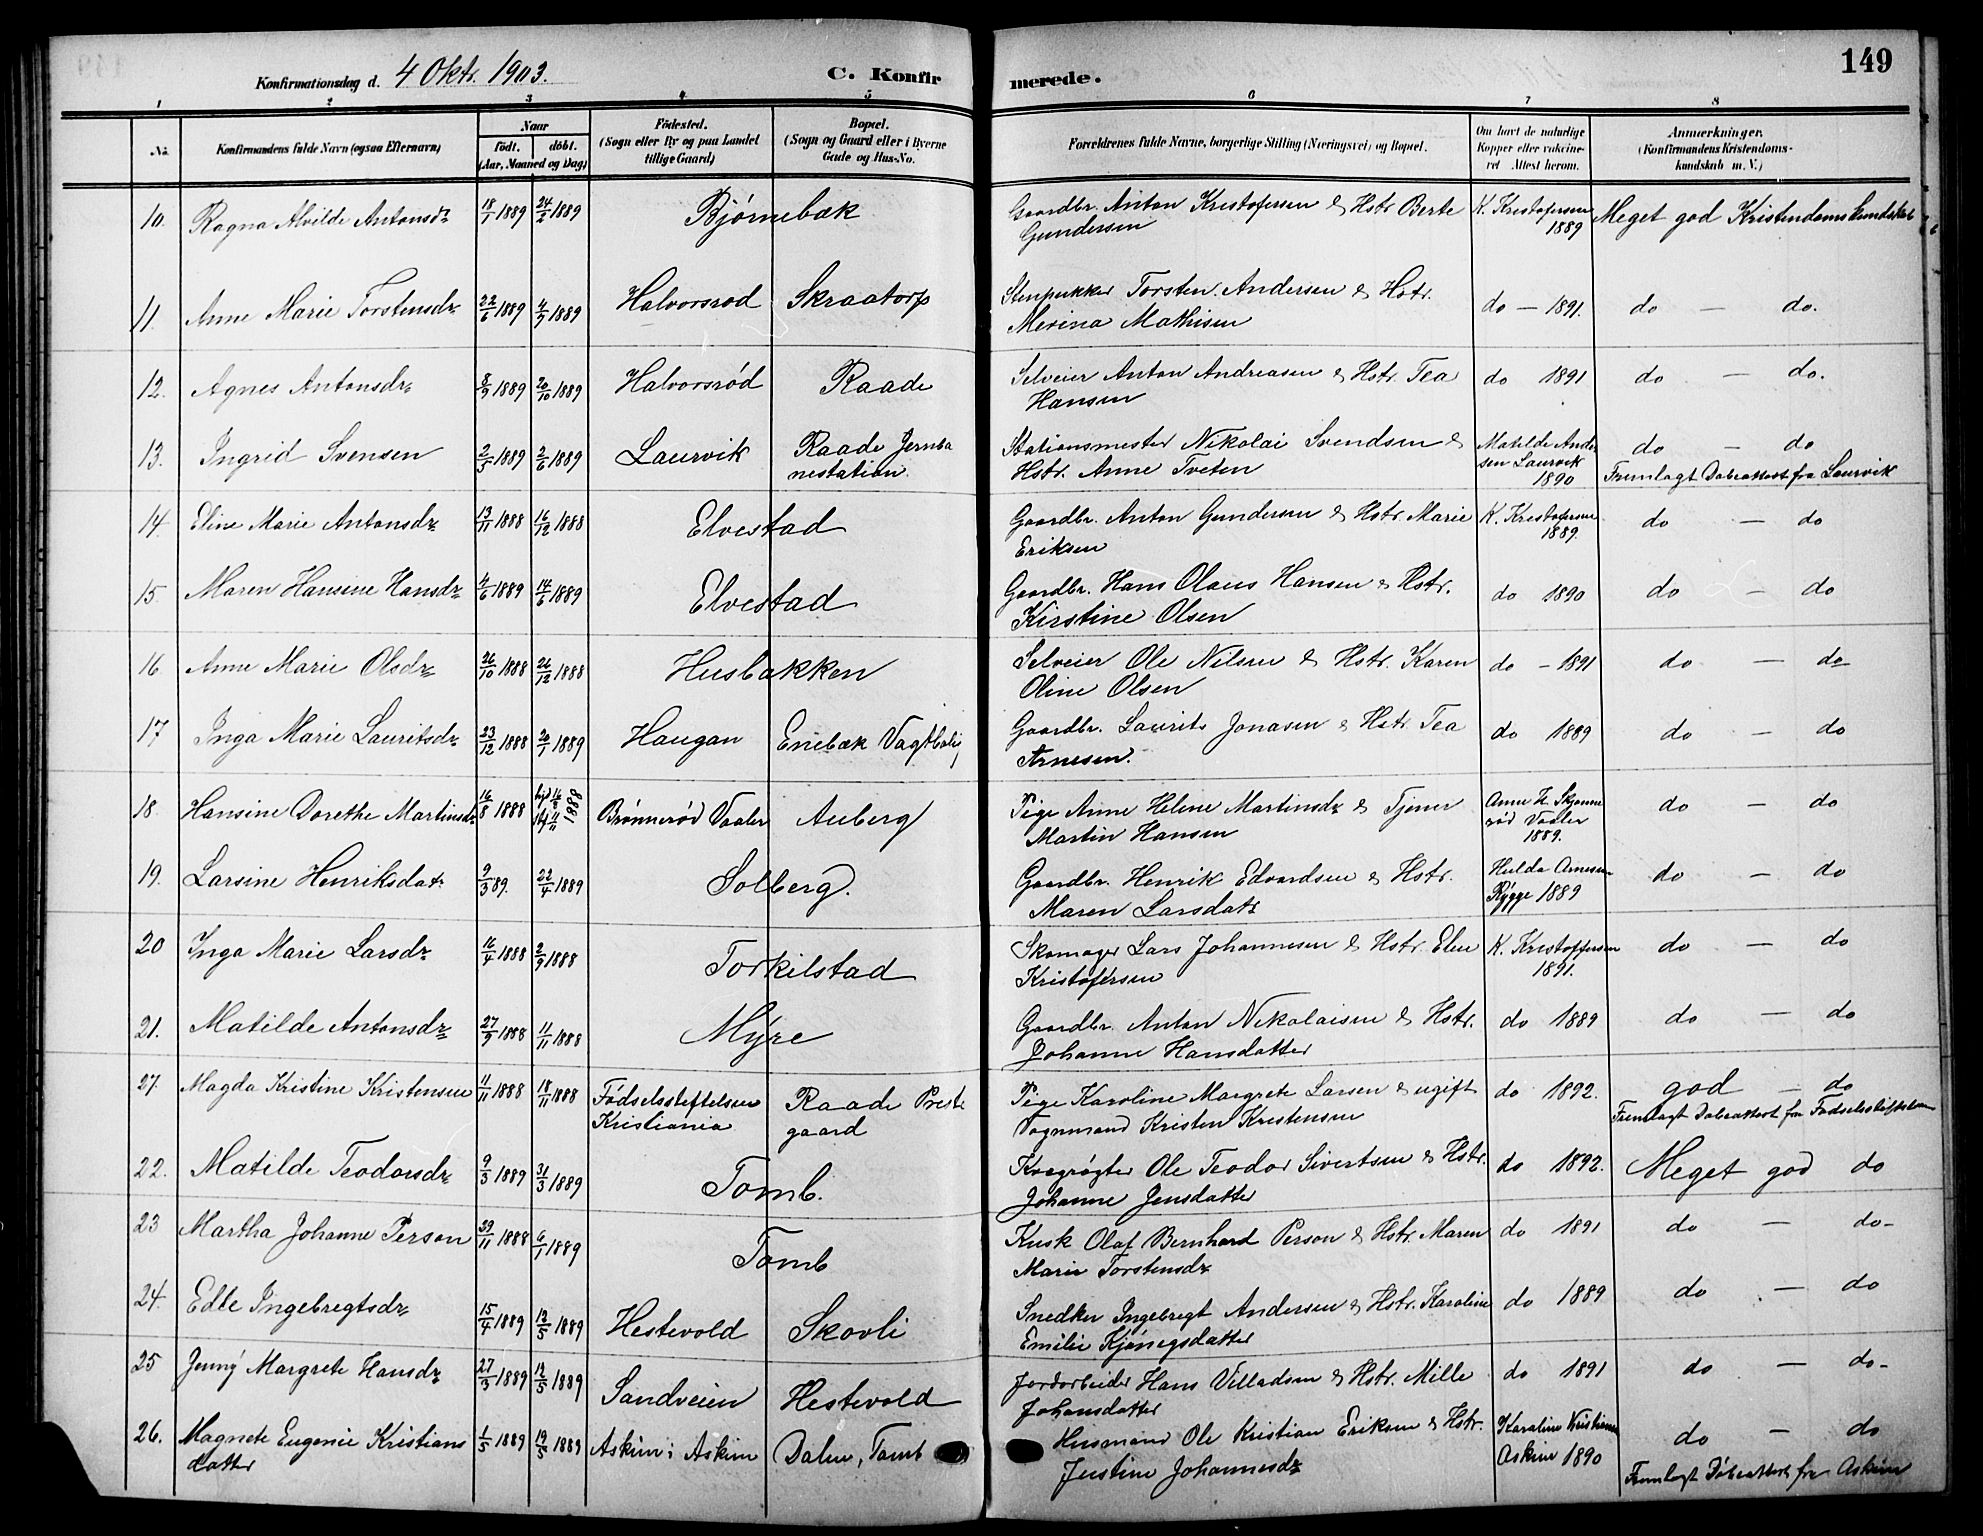 149
Konfirmationsdag d. 4 Oktr. 1903. C. Konfirmerede.
1 2 3 4 5 6 7 8
No. Konfirmandens fulde Navn (ogsaa Efternavn) Naar født. døbt. (Aar, Maaned og Dag) Fødested. (Sogn eller By og paa Landet tillige Gaard) Bopæl. (Sogn og Gaard eller i Byerne Gade og Hus-No. Forældrenes fulde Navne, borgerlige Stilling (Næringsvei) og Bopæl. Om havt de naturlige Kopper eller vakcineret Attest herom. Anmærkninger. (Konfirmandens Kristendomskundskab m. V.)
10. Ragna Alvilde Antonsdr 18/1 1889 24/2 1889 Bjørnebæk Gaardbr. Anton Kristofersen & Hstr Berte Gundersen K. Kristofersen 1889 Meget god Kristendomskundskab
11. Anne Marie Torstensdr 22/6 1889 4/7 1889 Halvorsrød Skraatorp Stenpukker Torsten Andersen & Hstr. Merina Mathisen do — 1891. do — do.
12. Agnes Antonsdr 8/9 1889 20/10 1889 Halvorsrød Raade Selveier Anton Andreasen & Hstr Tea Hansen do 1891 do — do.
13. Ingrid Svensen 2/5 1889 2/6 1889 Laurvik Raade Jernbanestation. Stationsmester Nikolai Svendsen & Hstr. Anne Tveten Matilde Andersen Laurvik 1890 do — do
Fremlagt Dabsattest fra Laurvik
14. Eline Marie Antonsdr 13/11 1888 16/12 1888 Elvestad Gaardbr. Anton Gundersen & Hstr Marie Eriksen K. Kristofersen 1889. do — do
15. Maren Hansine Hansdr 4/6 1889 14/6 1889 Elvestad Gaardbr. Hans Olaus Hansen & Hstr. Kirstine Olsen do 1890 do — do
16 Anne Marie Olsdr 26/10 1888 26/12 1888 Husbakken Selveier Ole Nilsen & Hstr. Karen Oline Olsen do – 1891 do — do
17 Inga Marie Lauritsdr 23/12 1888 20/1 1889 Haugan Enebæk Vagtbolig Gaardbr. Laurits Jonasen & Hstr Tea Arnesen. do 1889 do — do
18. Hansine Dorethe Martinsdr 16/8 1888 11/11 1888 Brønnerød Vaaler Auberg Pige Anne Heline Martinsdr & Tjener Martin Hansen Vaaler 1889. do — do
19. Larsine Henriksdatr 9/3 89. 22/4 1889 Solberg. Gaardbr. Henrik Edvardsen & Hstr. Maren Larsdatr Hulda Arnesen Rygge 1889 do — do
20 Inga Marie Larsdr 16/4 1888 2/9 1888 Torkilstad Skomager Lars Johannesen & Hstr. Elen Kristofersen K. Kristoffersen 1891. do — do
21. Matilde Antonsdr 27/9 1888 11/11 1888 Myre Gaardbr. Anton Nikolaisen & Hstr. Johanne Hansdatter do 1889 do — do
27. Magda Kristine Kristensen 11/11 1888 18/11 1888 Fødselsstiftelsen Kristiania Raade Prestegaard Pige Karoline Margrete Larsen & ugift Vognmand Kristen Kristensen do 1892. god — do
Fremlagt Dabsattest fra Fødselsstiftelsen
22. Matilde Teodorsdr 9/3 1889 31/3 1889 Tomb. Kvægrøgter Ole Teodor Sivertsen & Hstr. Johanne Jensdatter do 1892. Meget god do
23 Martha Johanne Person 29/11 1888 6/1 1889 Tomb Kusk Olaf Bernhard Person & Hstr. Maren Marie Torstensdr do 1891 do — do
24. Edle Ingebregtsdr 15/4 1889 12/5 1889 Hestevold Skovli Snedker Ingebregt Andersen & Hstr. Karoline Emilie Kjønegsdatter do 1889 do — do
25 Jenny Margrete Hansdr 27/3 1889 12/5 1889 Sandveien Hestevold Jordarbeider Hans Villadsen & Hstr. Mille Johansdatter do 1891 do — do
26. Magnete Eugenie Kristiansdatter 1/5 1889 19/5 1889 Askim i Askim Dalen, Tomb Husmand Ole Kristian Eriksen & Hstr. Justine Johannesdr Karoline Kristiansen Askim 1890 do — do
Fremlagt Dåbsattest fra Askim